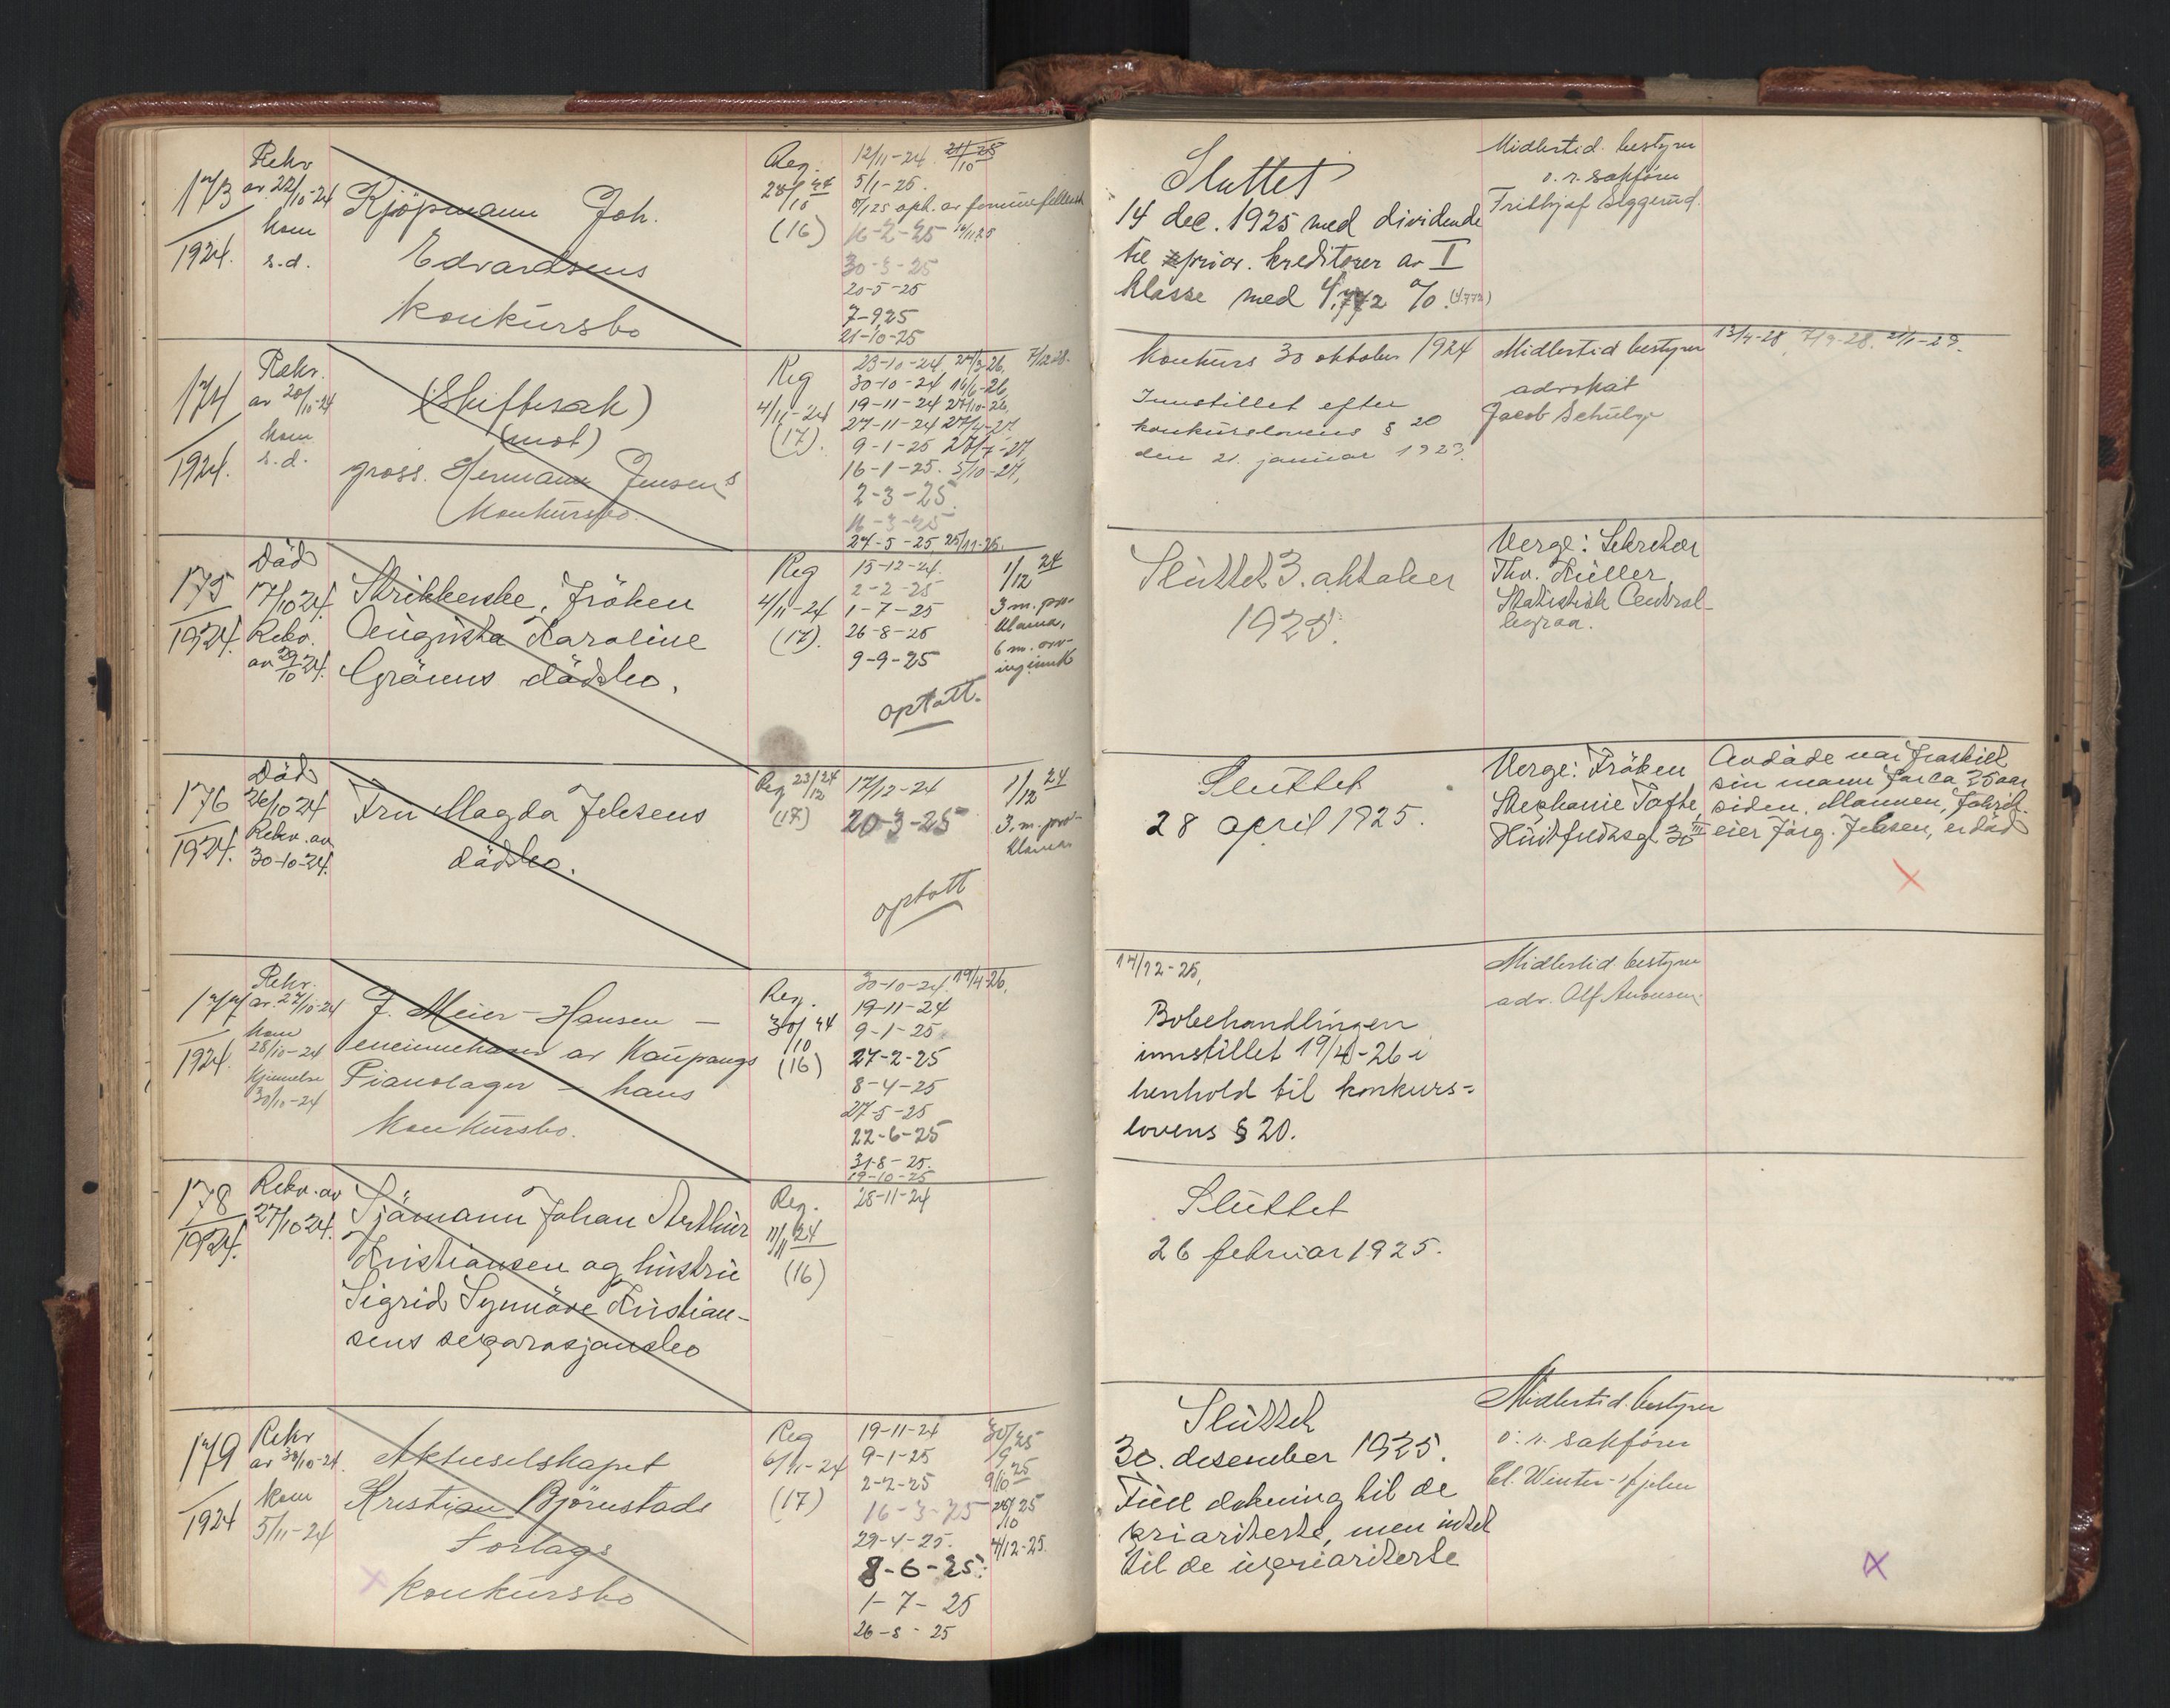 173
1924.
Rekv
av 22/10-24
kom
s.d.
Kjöpmann Joh.
Edvardsens
konkursbo
Reg.
(16)
12/11-24
5/1-25.
16-2-25
30-3-25
20-5-25
7-9-25
21-10-25
Sluttet
14 dec. 1925 med dividende
til prior. kreditorer av I
klasse med 4,772 %. (4.772)
Midlertid. bestyrer
o.r. sakförer
Frithjof Seggerud.
174
1924.
Rekv.
av 20/10-24
kom
s.d.
(Skiftesak)
(mot)
gross. Hermann Jensens
Konkursbo.
Reg
4/11-24
(17).
23-10-24, 24/3-26, 7/12-28.
30-10-24, 16/6-26,
19-11-24 27/10-26,
27-11-24 27/4-27
9-1-25 27/7-27,
16-1-25. 5/10-27,
2-3-25.
16-3-25
27-5-25, 25/11-25.
Konkurs 30 oktober 1924
Innstillet efter
konkurslovens § 20
den 21. januar 1929.
Midlertid bestyrer
advokat
Jacob Schulze
13/4-28, 7/9-28. 21/1-29.
175
1924.
Död
17/10 24.
Rekv.
av 29/10 24.
Strikkerske, Fröken
Augusta Karoline
Grönns dödsbo.
Reg
4/11-24
(17).
15-12-24.
2-2-25
1-7-25
26-8-25
9-9-25
optatt.
1/12 24
3 m. pro-
klama,
Sluttet 3. oktober
1925.
Verge: Sekretær
Thv. Müller,
Statistisk Central-
byraa.
176
1924.
Död
26/10 24
Rekv. av
30-10-24.
Fru Magda Jebsens
dödsbo.
Reg 23/12 24
(17)
17/12-24
20-3-25
optatt
1/12 24
3. m. pro-
klama
Sluttet
28 april 1925.
Verge: Fröken
Stephanie Tofte,
Huitfeldtsgt. 30 III
Avdöde var fraskilt
sin mann for ca 25 aar
siden. Mannen, fabrik-
eier Jörg. Jebsen, er död
177
1924.
Rekv.
av. 27/10-24
kom
28/10-24
Kjennelse
30/10-24
J. Meier-Hansen —
eneinnehaver av Kaupangs
Pianolager — hans
Konkursbo.
Reg.
30/10 24
(16)
30-10-24. 19/4-26.
19-11-24
9-1-25
27-2-25
8-4-25
27-5-25
22-6-25
31-8-25.
19-10-25
14/12-25,
Bobehandlingen
innstillet 19/4-26 i
henhold til konkurs-
lovens § 20.
Midlertid. bestyrer
adv. Alf
178
1924.
Rekv. av
27/10 24.
Sjömann Johan Arthur
Kristiansen og hustru
Sigrid Synnöve Kristian-
sens separasjonsbo
Reg.
11/11 24
(16)
28-11-24
Sluttet
26 februar 1925.
179
1924
Rekv
av 30/10-24.
kom
5/11-24
Aktieselskapet
Kristian Björnstads
Forlags
konkursbo
Reg
6/11-24
(17)
19-11-24
9-1-25
2-2-25
16-3-25
29-4-25.
8-6-25.
1-7-25
26-8-25
30/9 25
9/10 25
26/10 25
4/12-25.
Sluttet
30. desember 1925.
Full dekning til de
prioriterte, men intet
til de uprioriterte
Midlertid. bestyrer
o.r. sakförer